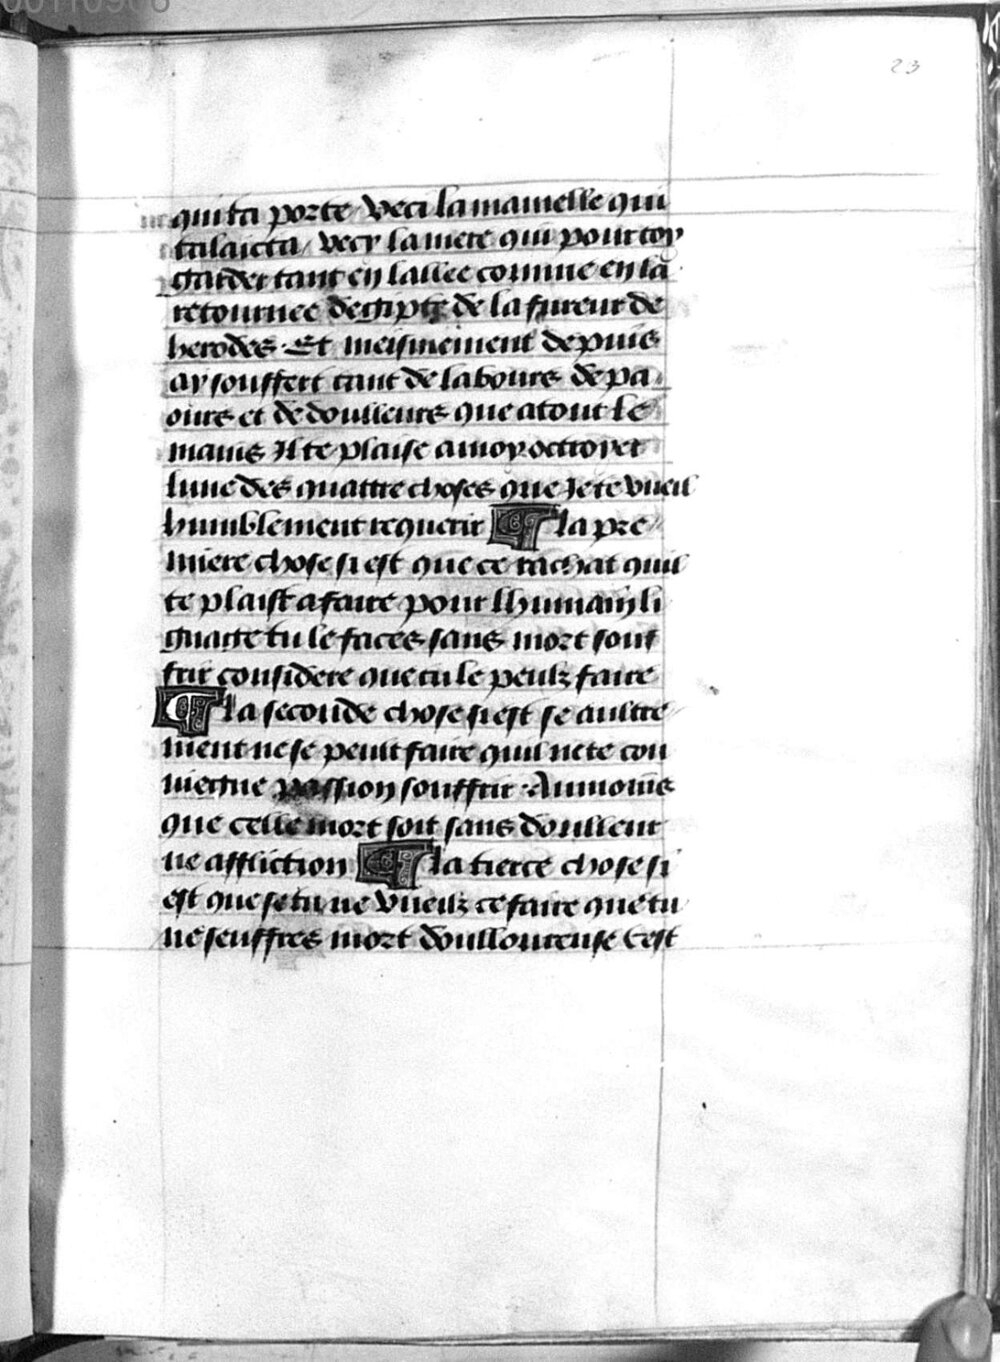 23
qui ta porte / veci la mamelle qui
talaicta / vecy la mere qui pour toy
garder tant en lallee comme en la
retournee degipte de la fureur de
herodes . Et meismement depuis
ay souffert tant de labours de pa
ours et de doulleurs que atout le
mains Il te plaise a moy octroyer
lune des quattre choses que Je te vueil
humblement requerir ¶ la pre
miere chose si est que ce rachat quil
te plaist a faire pour lhumain li
gnaige tu le faces sans mort souf
frir considere que tu le peulz faire
¶ la seconde chose si est se aultre
ment ne se peult faire quil ne te con
viegne passion souffrir . Au moins
que celle mort soit sans doulleur
ne affliction ¶ la tierce chose si
est que se tu ne vueulz ce faire que tu
ne seuffres mort doulloureuse Cest